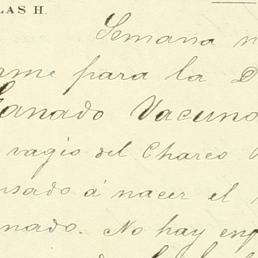 LAS H.
Semana n
rme para la D
Ganado Vacuno
vagio del Charco
nsado á nacer el
nado. No hay en